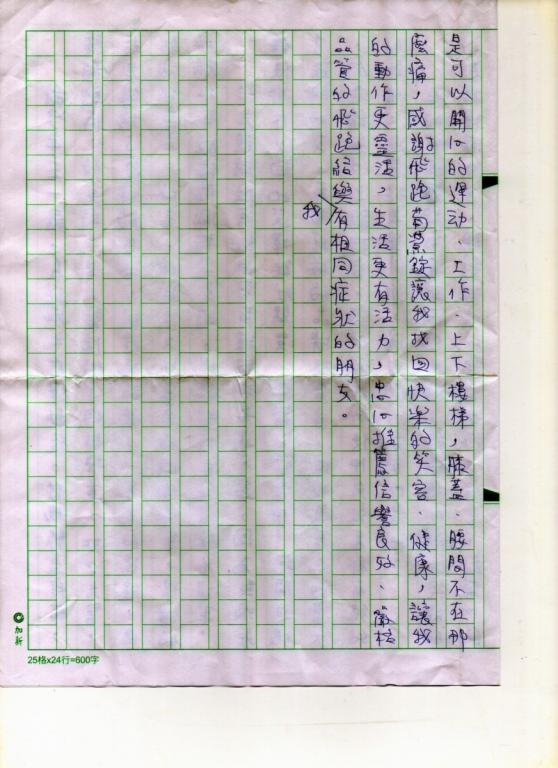 是可以開心的運动、工作、上下樓梯，膝蓋、腰間不在那
麼痛，感謝飛跑葡萄錠讓我找回快樂的笑容、健康，讓我
的動作更靈活，生活更有活力，忠心推薦信譽良好、嚴格
品管的飛跑給與我有相同症狀的朋友。
加新
25格x24行=600字